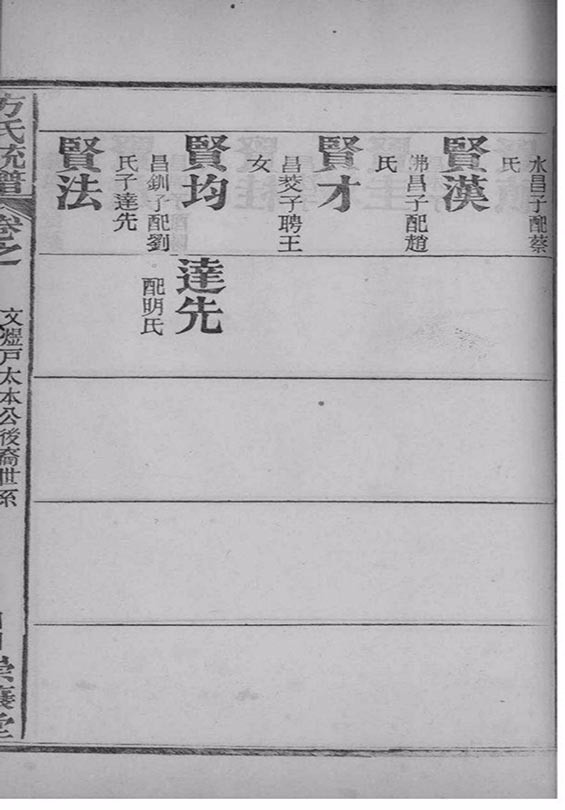 水昌子配蔡
氏
賢漢
佛昌子配趙
氏
賢才
昌子聘王
女
賢均
昌釧子配劉
氏子達先
賢法
達先
配明氏
方氏統譜
卷之
文戶太本公後裔世系
崇讓堂